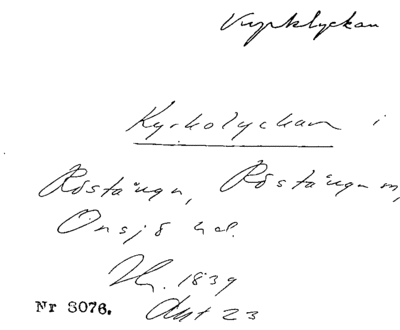 Kyrklyckan
Kyrkolyckan i
Röstånga, Röstånga sn,
Onsjö hd.
Hs. 1839
Akt 23
Nr 3076.